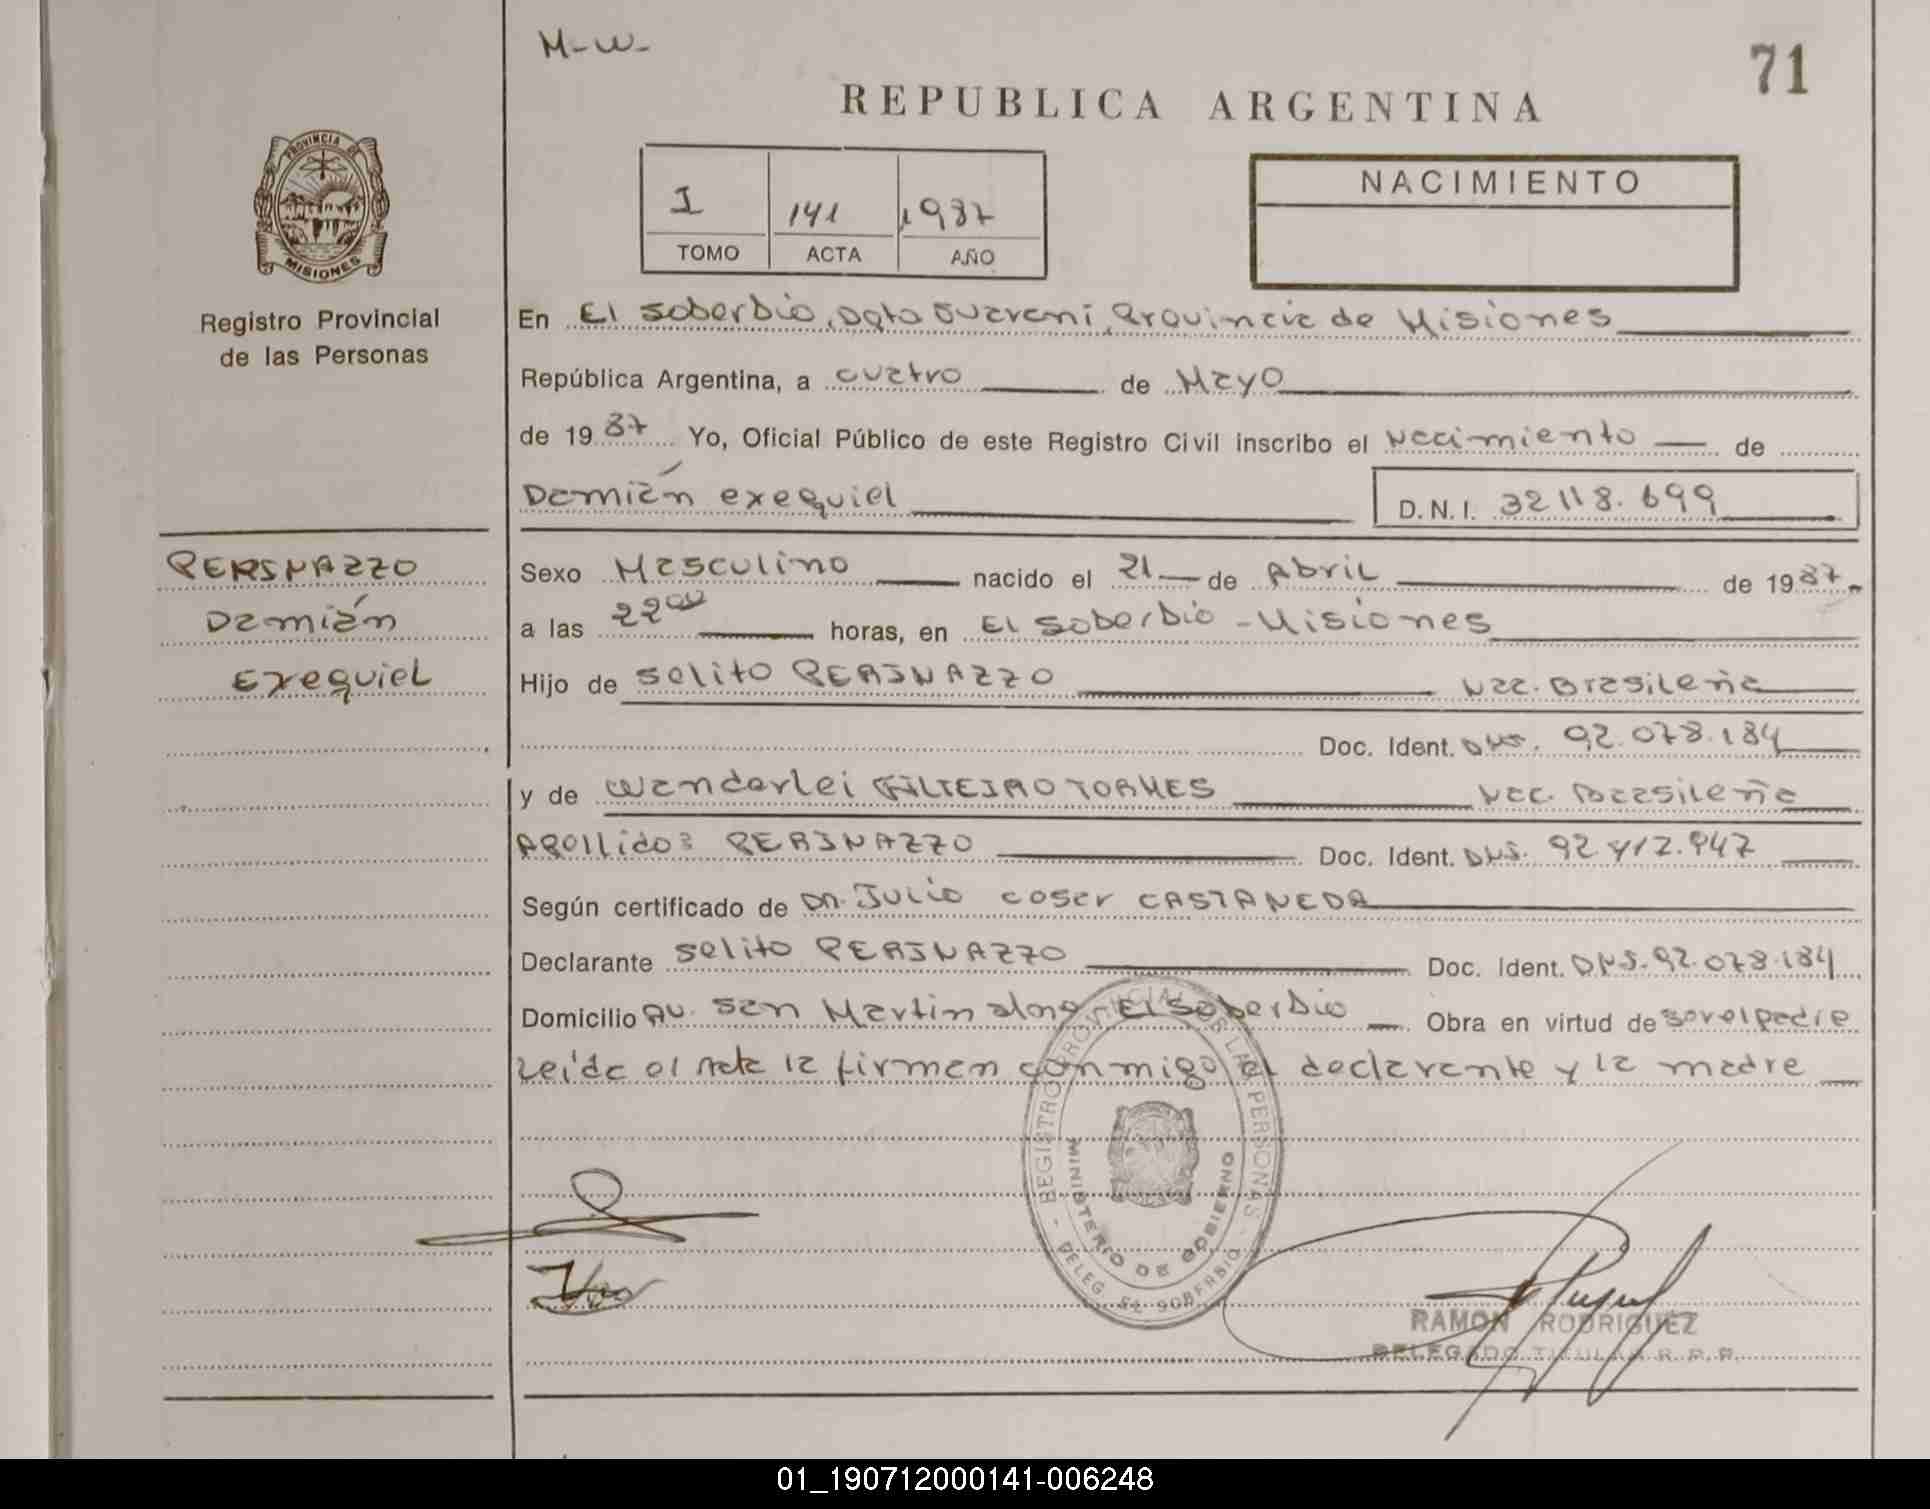 M-W-
71
REPUBLICA ARGENTINA
PROVINCIA DE
MISIONES
Registro Provincial
de las Personas
I 141 1987
TOMO ACTA AÑO
NACIMIENTO
En El Soberbio, Dpto Guarani, Provincia de Misiones
República Argentina, a cuatro de Mayo
de 1987 Yo, Oficial Público de este Registro Civil inscribo el Nacimiento de
Damián exequiel D.N.I. 32118.699
PERINAZZO
Damián
Exequiel
Sexo Masculino nacido el 21 de Abril de 1987.
a las 22 00 horas, en El Soberbio - Misiones
Hijo de Selito PERINAZZO Nac. Brasileña
Doc. Ident. DNI. 92.078.184
y de Wanderlei TORMES Nac. Brasileña
Apellido: PERINAZZO Doc. Ident. DNI. 92.412.947
Según certificado de Dr. Julio Cesar CASTANEDA
Declarante Selito PERINAZZO Doc. Ident. DNI. 92.078.184
Domicilio Av. San Martin El Soberbio Obra en virtud de ser el padre
Leída el Acta la firman conmigo el declarante y la madre
REGISTRO PROVINCIAL DE LAS PERSONAS
MINISTERIO DE GOBIERNO
DELEG. EL SOBERBIO
RAMON RODRIGUEZ
DELEGADO TITULAR R.P.P.
01_190712000141-006248